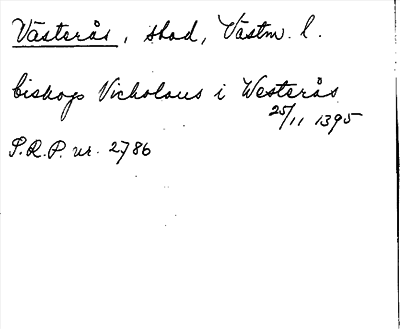 Västerås, stad, Västm. l.
biskop Nicholaus i Westerås
25/11 1395
S.R.P. nr. 2786